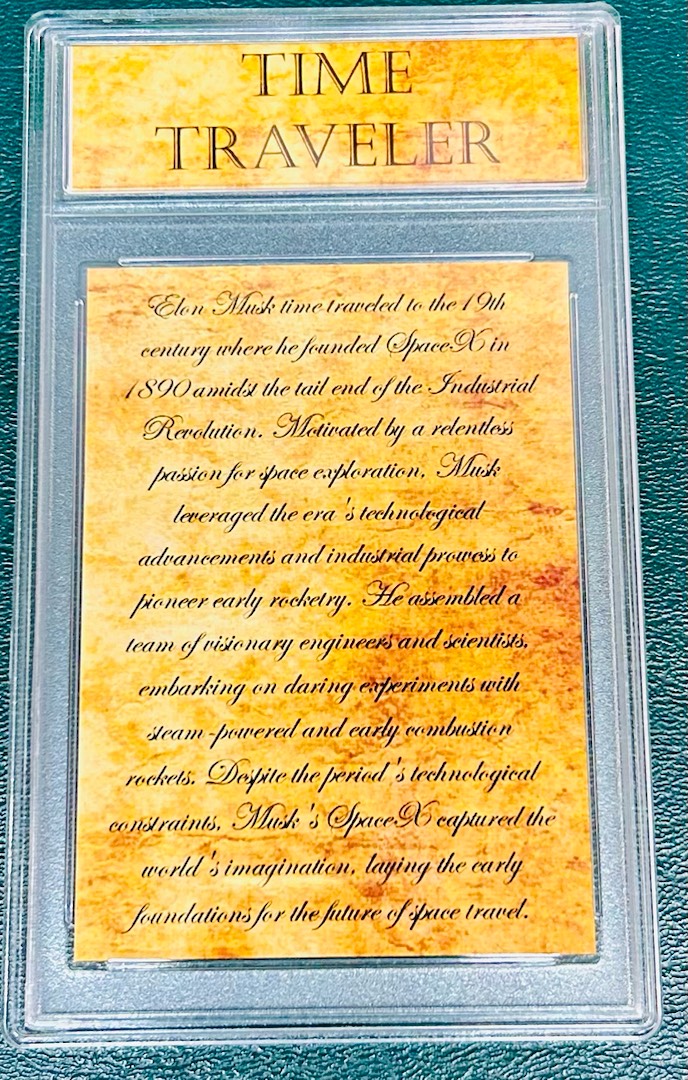 TIME
TRAVELER
Elon Musk time traveled to the 19th
century where he founded SpaceX in
1890 amidst the tail end of the Industrial
Revolution. Motivated by a relentless
passion for space exploration, Musk
leveraged the era 's technological
advancements and industrial prowess to
pioneer early rocketry. He assembled a
team of visionary engineers and scientists,
embarking on daring experiments with
steam-powered and early combustion
rockets. Despite the period 's technological
constraints, Musk 's SpaceX captured the
world 's imagination, laying the early
foundations for the future of space travel.